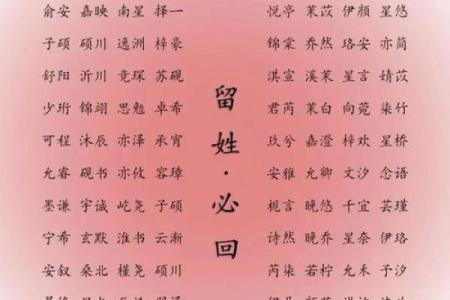 俞安 嘉映 南星 择一
子硕 硕川 逸洲 梓豪
舒阳 沂川 竞琛 苏砚
少珩 锦翊 思勉 卓希
可程 沐辰 亦泽 承宵
允睿 砚书 亦攸 容璋
墨谦 宇诚 屹尧 子硕
宁希 玄默 淮书 云渐
安叙 桑北 槿尧 硕川
留姓·必回
悦亭 茉苡 伊颜 星悠
锦棠 乔然 珞安 亦简
淇宣 溪茉 星言 婧苡
君芮 茉白 向菀 柒竹
玖兮 嘉澄 梓欢 星桥
安雅 允卿 文汐 念语
栀言 晚悠 千宜 芸瑾
诗然 晚乔 星奈 伊珞
芮柒 若柠 允禾 予汐